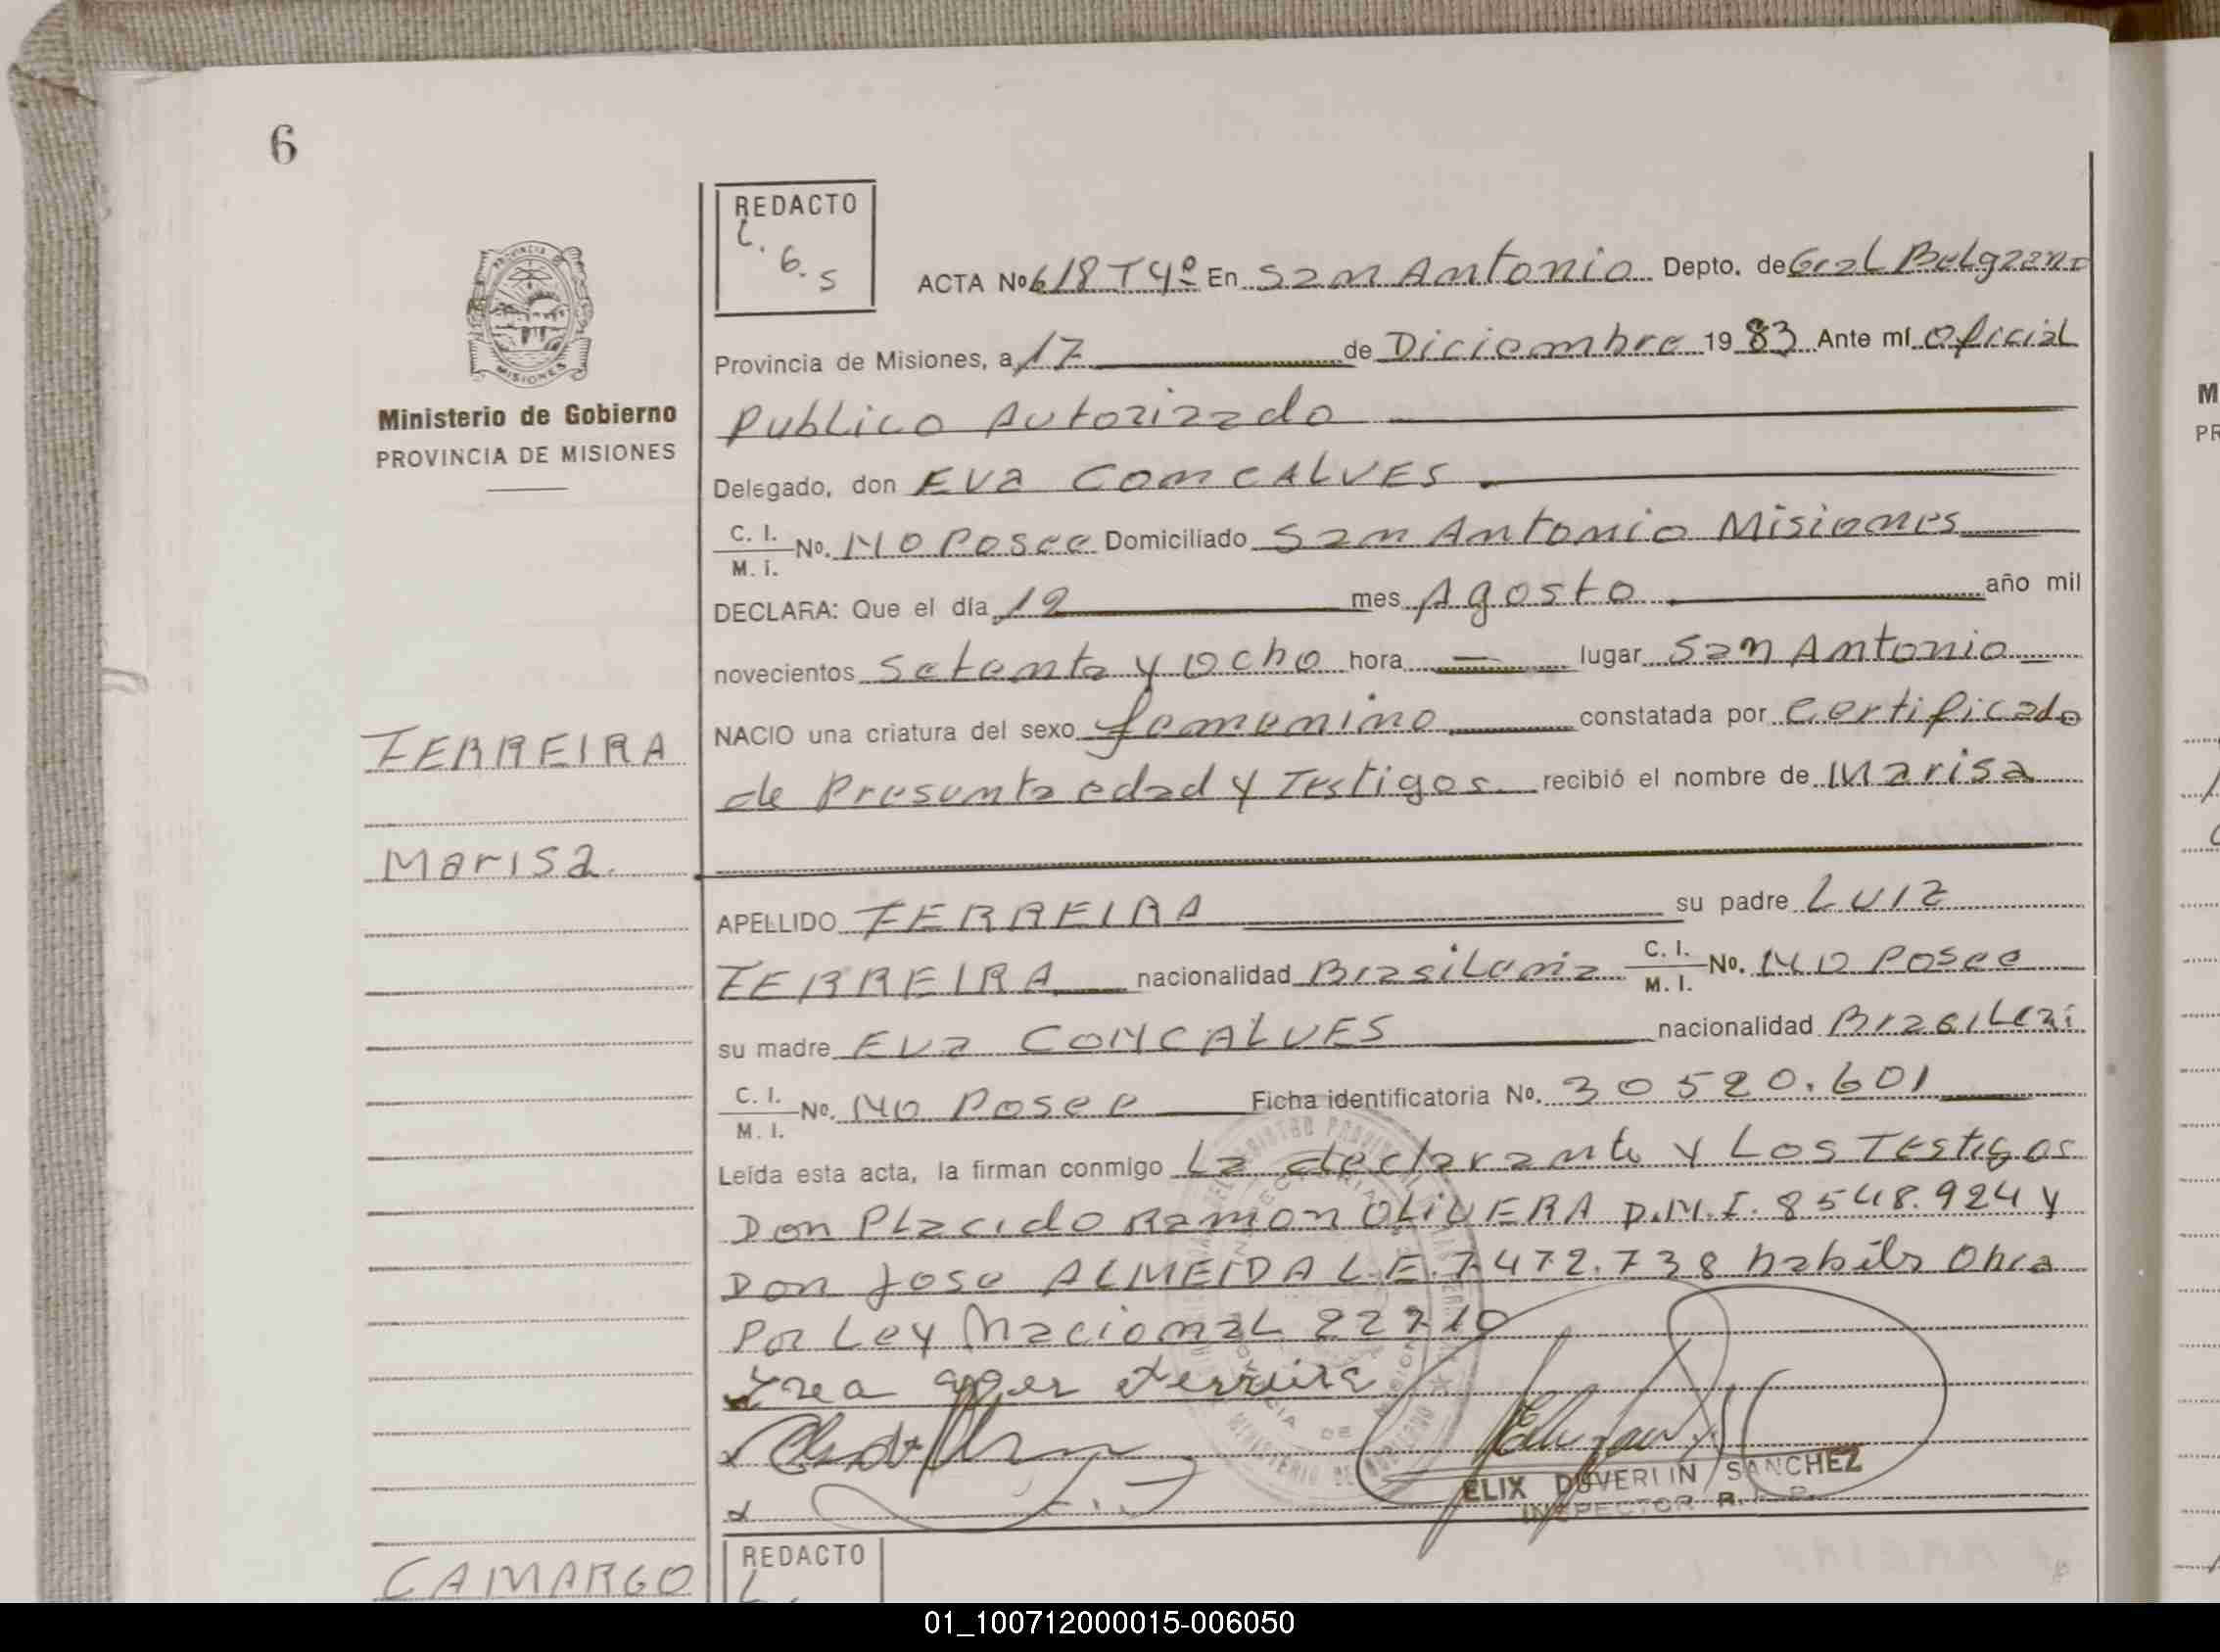 6
REDACTO
L. G. S
ACTA Nº 618 T4º En San Antonio Depto. de Gral Belgrano
Provincia de Misiones, a 17 de Diciembre 1983 Ante mí Oficial
Publico Autorizado
Ministerio de Gobierno
PROVINCIA DE MISIONES
Delegado, don Eva CONCALVES
C. I. / M. I. No. NO Posee Domiciliado San Antonio Misiones
DECLARA: Que el día 12 mes Agosto año mil
novecientos Setenta y Ocho hora — lugar San Antonio
NACIO una criatura del sexo femenino constatada por Certificado
de Presunta edad y Testigos recibió el nombre de Marisa
FERREIRA
Marisa.
APELLIDO FERREIRA su padre LUIZ
FERREIRA nacionalidad Brasileria C. I. / M. I. No. NO Posee
su madre Eva CONCALVES nacionalidad Brasilera
C. I. / M. I. No. NO Posee Ficha identificatoria No. 30520.601
Leída esta acta, la firman conmigo La declarante y Los Testigos
Don Placido Ramon OLIVERA D.M.I. 8548.924 y
Don Jose ALMEIDA L.E. 7.472.738 habils
Por Ley Nacional
Ferreira
ELIX DUVERLIN SANCHEZ
INSPECTOR R. P.
REDACTO
CAMARGO
PROVINCIA DE MISIONES
MINISTERIO DE GOBIERNO
M
PR
01_100712000015-006050